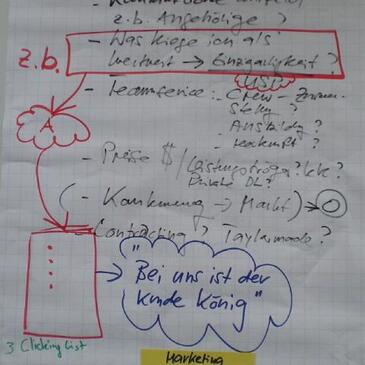 z.B. Angehörige ?
z.B.
- Was kriege ich als
→ Einzigartigkeit ?
USP
- Teamservice :- Crew - Zusammen-
stellg ?
- Ausbildg ?
- Herkunft ?
A
- Preise $ / Leistungsträger? kk?
Private DL?
(- Konkurrenz → Markt) →
- Contracting ? Taylormade ?
"Bei uns ist der
Kunde König"
3 Clicking List
Marketing